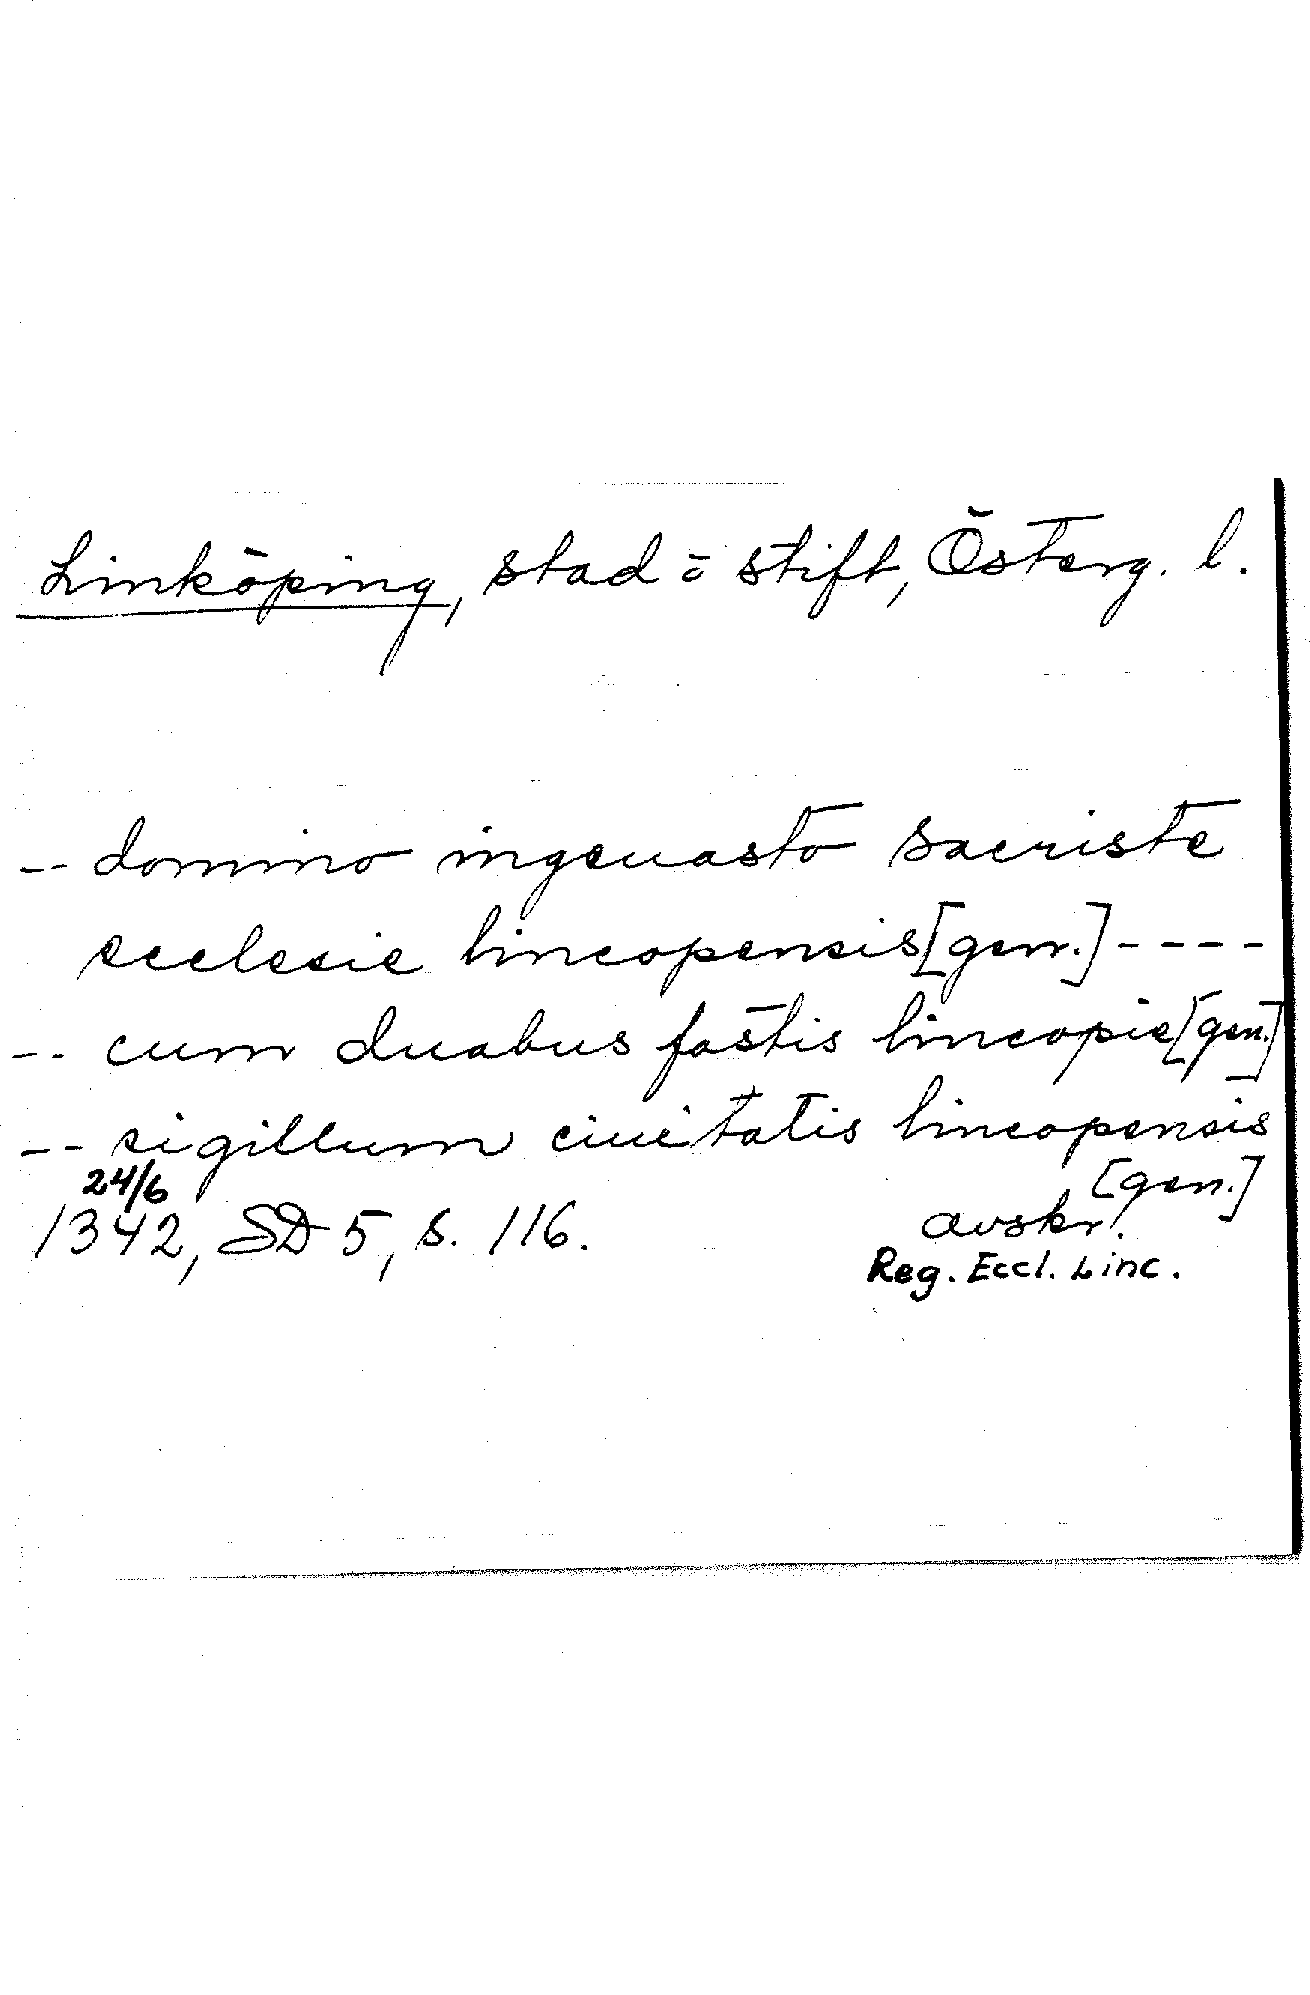 Linköping, stad o stift, Österg. l.
-- domino ingeuasto sacriste
ecclesie lincopensis [gen.] ----
-- cum duabus fastis lincopie [gen.]
-- sigillum ciuitatis lincopensis
[gen.]
24/6
1342, SD 5, s. 116. avskr.
Reg. Eccl. Linc.